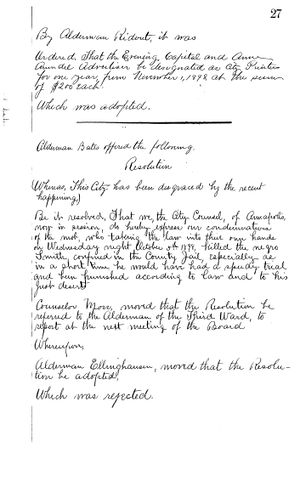 27
By Alderman Ridout, it was
Ordered, That the Evening Capital and Anne
Arundel Advertiser be designated as City Printer
for one year from November 1, 1898 at the sum
of $200 each.
Which was adopted.
Alderman Bates offered the following.
Resolution
Whereas, This City has been disgraced by the recent
happening,
Be it resolved, That we, the City Counsel, of Annapolis,
now in session, do hereby express our condemnation
of the mob, who taking the law into their own hands
on Wednesday night October 5th 1898, killed the negro
Smith, confined in the County Jail, especially as
in a short time he would have had a speedy trial
and been punished according to law and to his
just desert
Counselor Moss, moved that the Resolution be
referred to the Alderman of the Third Ward, to
report at the next meeting of the Board
Whereupon,
Alderman Ellinghausen, moved that the Resolu-
tion be adopted,
Which was rejected.